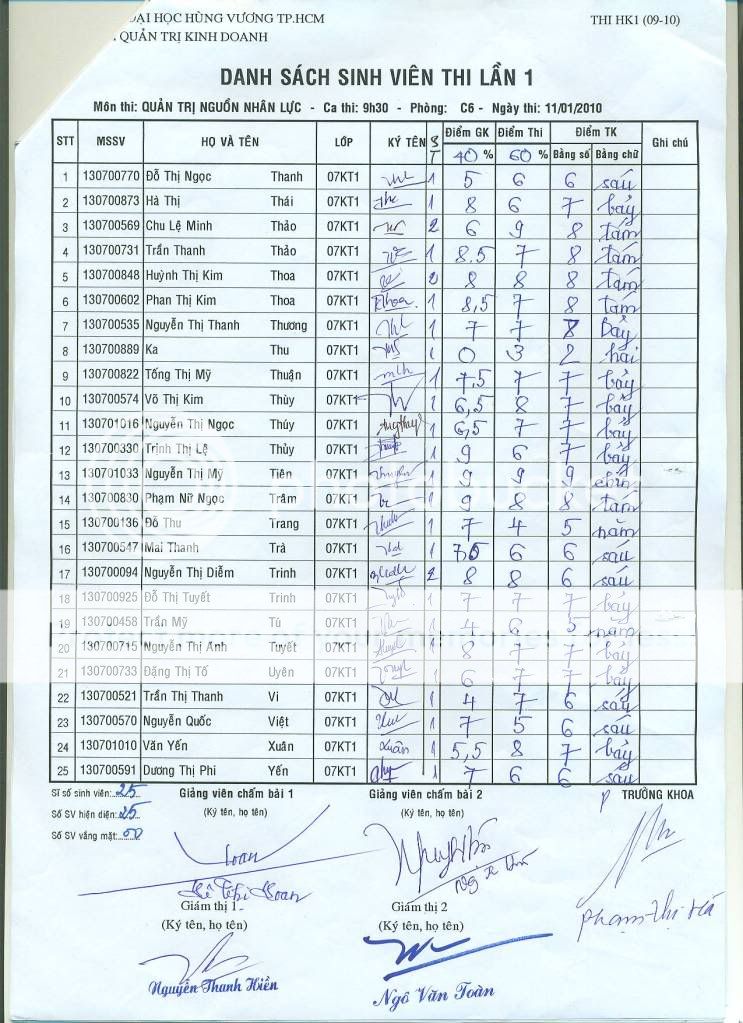 ĐẠI HỌC HÙNG VƯƠNG TP.HCM THI HK1 (09-10)
QUẢN TRỊ KINH DOANH
DANH SÁCH SINH VIÊN THI LẦN 1
Môn thi: QUẢN TRỊ NGUỒN NHÂN LỰC - Ca thi: 9h30 - Phòng: C6 - Ngày thi: 11/01/2010
STT MSSV HỌ VÀ TÊN LỚP KÝ TÊN ST Điểm GK Điểm Thi Điểm TK Ghi chú
40 % 60 % Bằng số Bằng chữ
1 130700770 Đỗ Thị Ngọc Thanh 07KT1 1 5 6 6 sáu
2 130700873 Hà Thị Thái 07KT1 1 8 6 7 bảy
3 130700569 Chu Lệ Minh Thảo 07KT1 2 6 9 8 tám
4 130700731 Trần Thanh Thảo 07KT1 1 8.5 7 8 tám
5 130700848 Huỳnh Thị Kim Thoa 07KT1 2 8 8 8 tám
6 130700602 Phan Thị Kim Thoa 07KT1 Khoa 1 8,5 7 8 tám
7 130700535 Nguyễn Thị Thanh Thương 07KT1 1 7 7 8 Bảy
8 130700889 Ka Thu 07KT1 1 0 3 2 hai
9 130700822 Tống Thị Mỹ Thuận 07KT1 1 7,5 7 7 bảy
10 130700574 Võ Thị Kim Thùy 07KT1 1 6,5 8 7 bảy
11 130701016 Nguyễn Thị Ngọc Thúy 07KT1 1 6,5 7 7 bảy
12 130700330 Trịnh Thị Lệ Thủy 07KT1 1 9 6 7 bảy
13 130701033 Nguyễn Thị Mỹ Tiên 07KT1 1 9 9 9 chín
14 130700830 Phạm Nữ Ngọc Trâm 07KT1 1 9 8 8 tám
15 130700136 Đỗ Thu Trang 07KT1 1 7 4 5 năm
16 130700547 Mai Thanh Trà 07KT1 1 7,5 6 6 sáu
17 130700094 Nguyễn Thị Diễm Trinh 07KT1 2 8 8 6 sáu
18 130700925 Đỗ Thị Tuyết Trinh 07KT1 1 7 7 7 bảy
19 130700458 Trần Mỹ Tú 07KT1 1 4 6 5 năm
20 130700715 Nguyễn Thị Anh Tuyết 07KT1 1 8 7 7 bảy
21 130700733 Đặng Thị Tố Uyên 07KT1 1 6 7 7 bảy
22 130700521 Trần Thị Thanh Vi 07KT1 1 4 7 6 sáu
23 130700570 Nguyễn Quốc Việt 07KT1 1 7 5 6 sáu
24 130701010 Văn Yến Xuân 07KT1 Xuân 1 5,5 8 7 bảy
25 130700591 Dương Thị Phi Yến 07KT1 1 7 6 6 sáu
Sĩ số sinh viên: 25 Giảng viên chấm bài 1 Giảng viên chấm bài 2 P TRƯỞNG KHOA
Số SV hiện diện: 25 (Ký tên, họ tên) (Ký tên, họ tên)
Số SV vắng mặt: 00
Loan
Lê Thị Loan
Giám thị 1 Giám thị 2
(Ký tên, họ tên) (Ký tên, họ tên)
Phạm Thị Hà
Nguyễn Thanh Hiền Ngô Văn Toàn